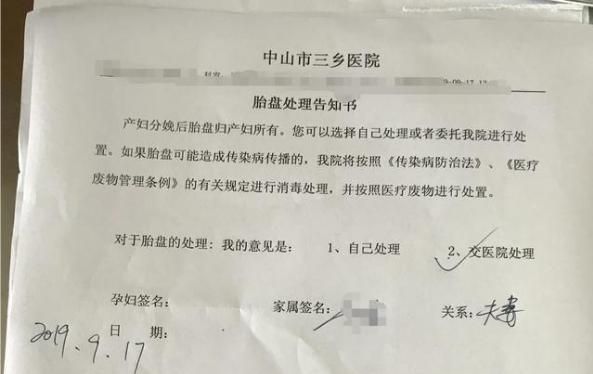 中山市三乡医院
胎盘处理告知书
产妇分娩后胎盘归产妇所有。您可以选择自己处理或者委托我院进行处
置。如果胎盘可能造成传染病传播的，我院将按照《传染病防治法》、《医疗
废物管理条例》的有关规定进行消毒处理，并按照医疗废物进行处置。
对于胎盘的处理：我的意见是： 1、自己处理 2、交医院处理
孕妇签名： 家属签名： 关系：夫妻
日 期：
2019.9.17